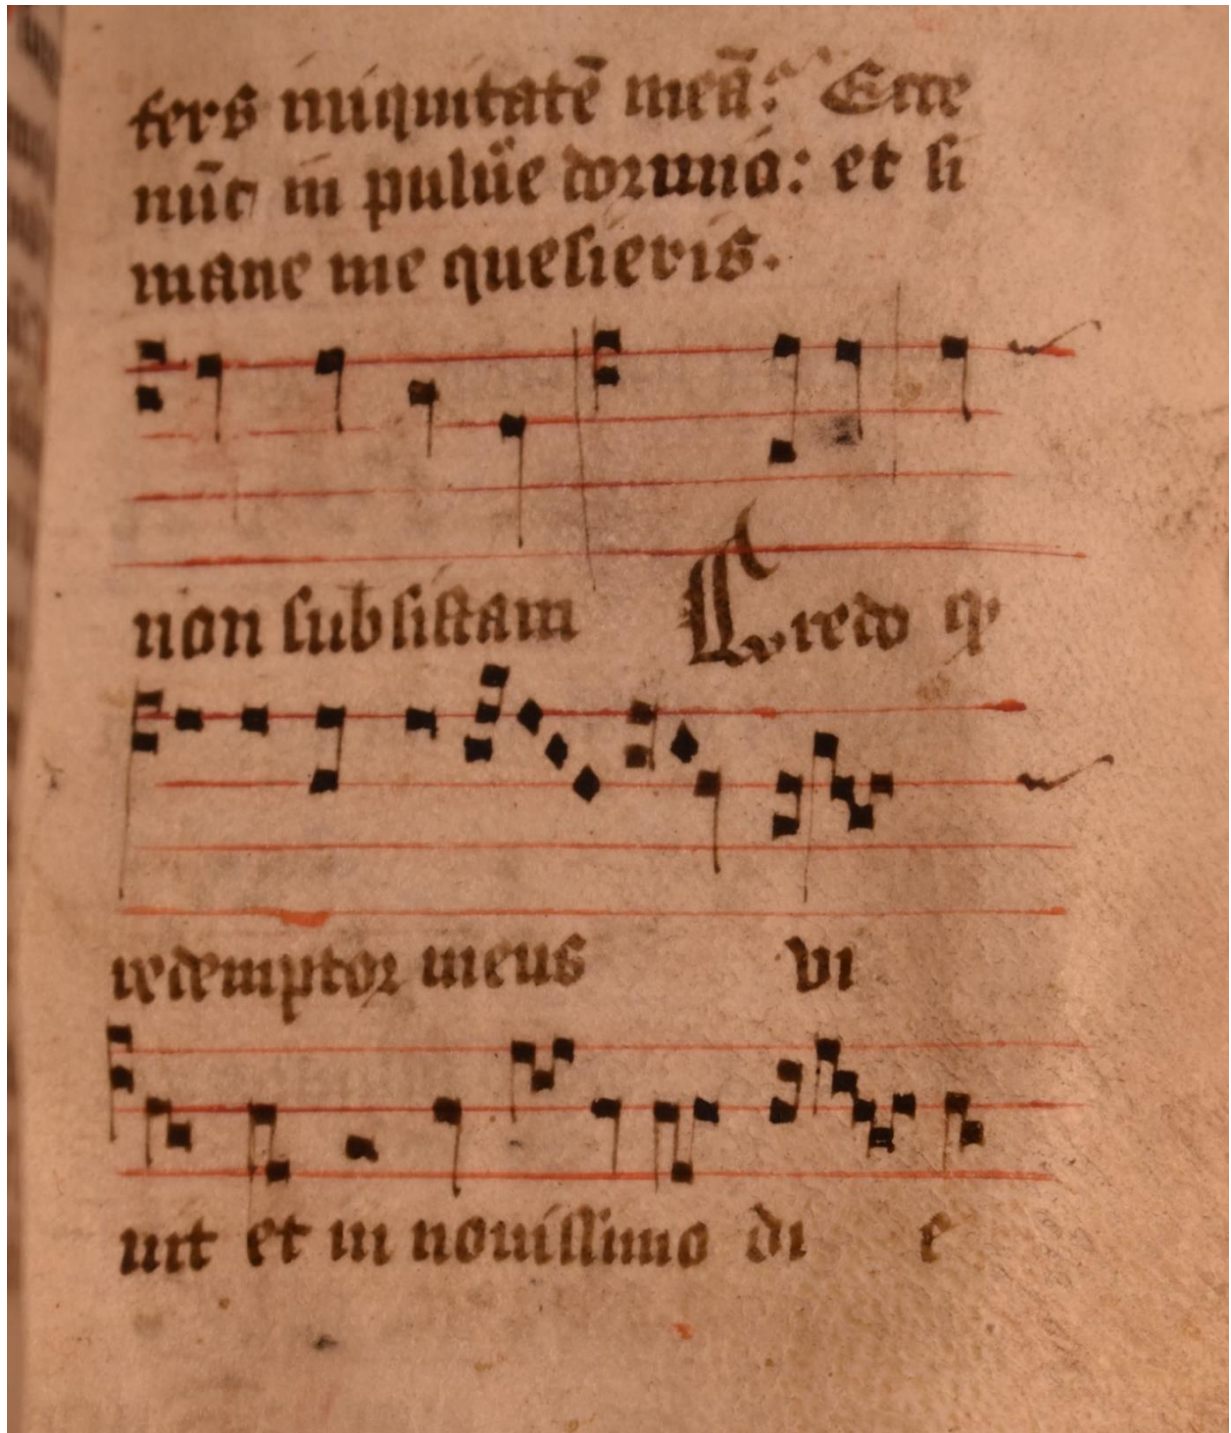 fers iniquitatē meā: Ecce
nūc in puluē dormio: et si
mane me quesieris.
non subsistam Credo q
redemptor meus vi
uit et in nouissimo di e